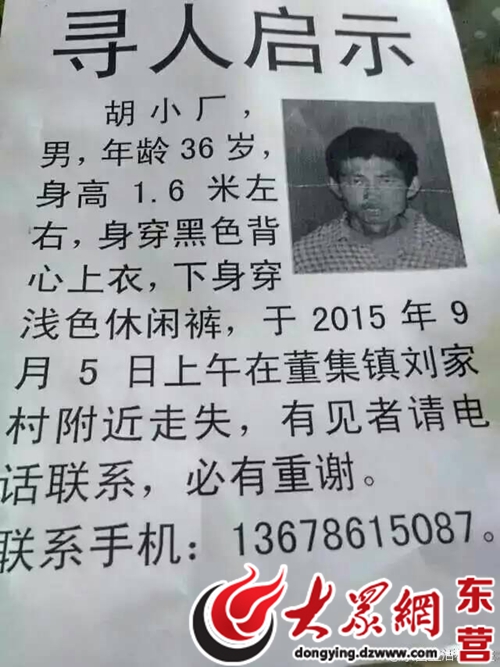 寻人启示
胡小厂，
男，年龄36岁，
身高1.6米左
右，身穿黑色背
心上衣，下身穿
浅色休闲裤，于2015年9
月5日上午在董集镇刘家
村附近走失，有见者请电
话联系，必有重谢。
联系手机：13678615087。
大眾網 东营
dongying.dzwww.com